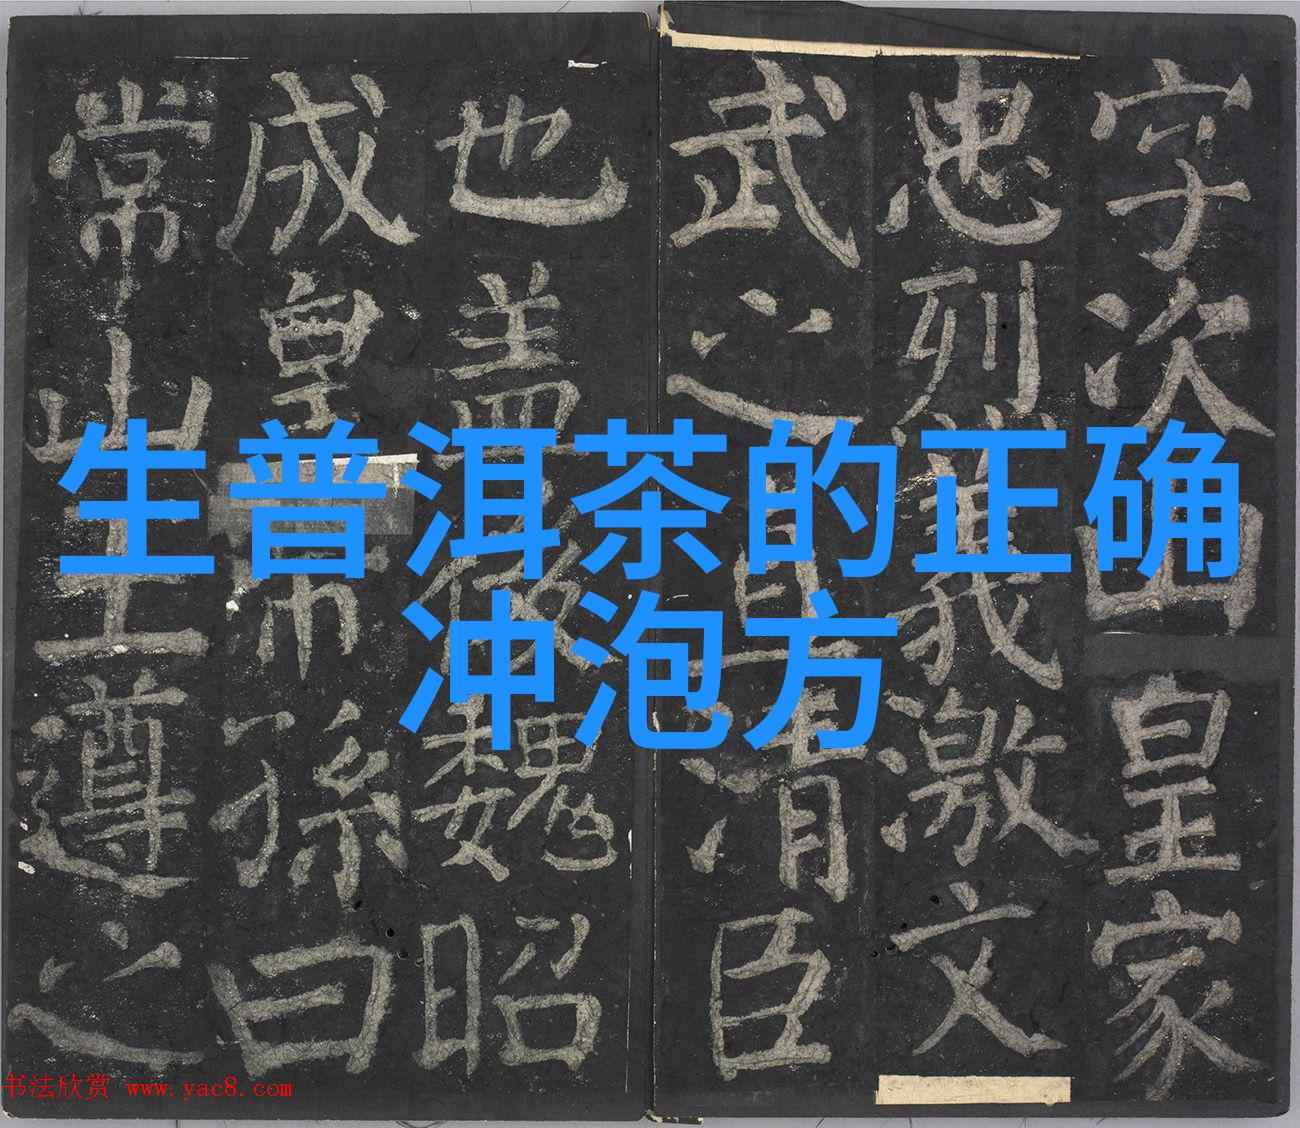 生普洱茶的正确
冲泡方
字次山皇家
忠烈義激文
武之直清臣
也盖後魏昭
成皇帝孫曰
常山王遵之
书法欣赏 www.yac8.com